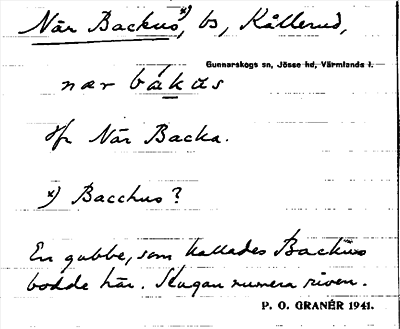 När Backus x), bs, Kållerud,
Gunnarskogs sn, Jösse hd, Värmlands l.
nær bákɯs
Jfr När Backa.
x) Bacchus?
En gubbe, som kallades Backus
bodde här. Stugan numera riven.
P. O. GRANÉR 1941.